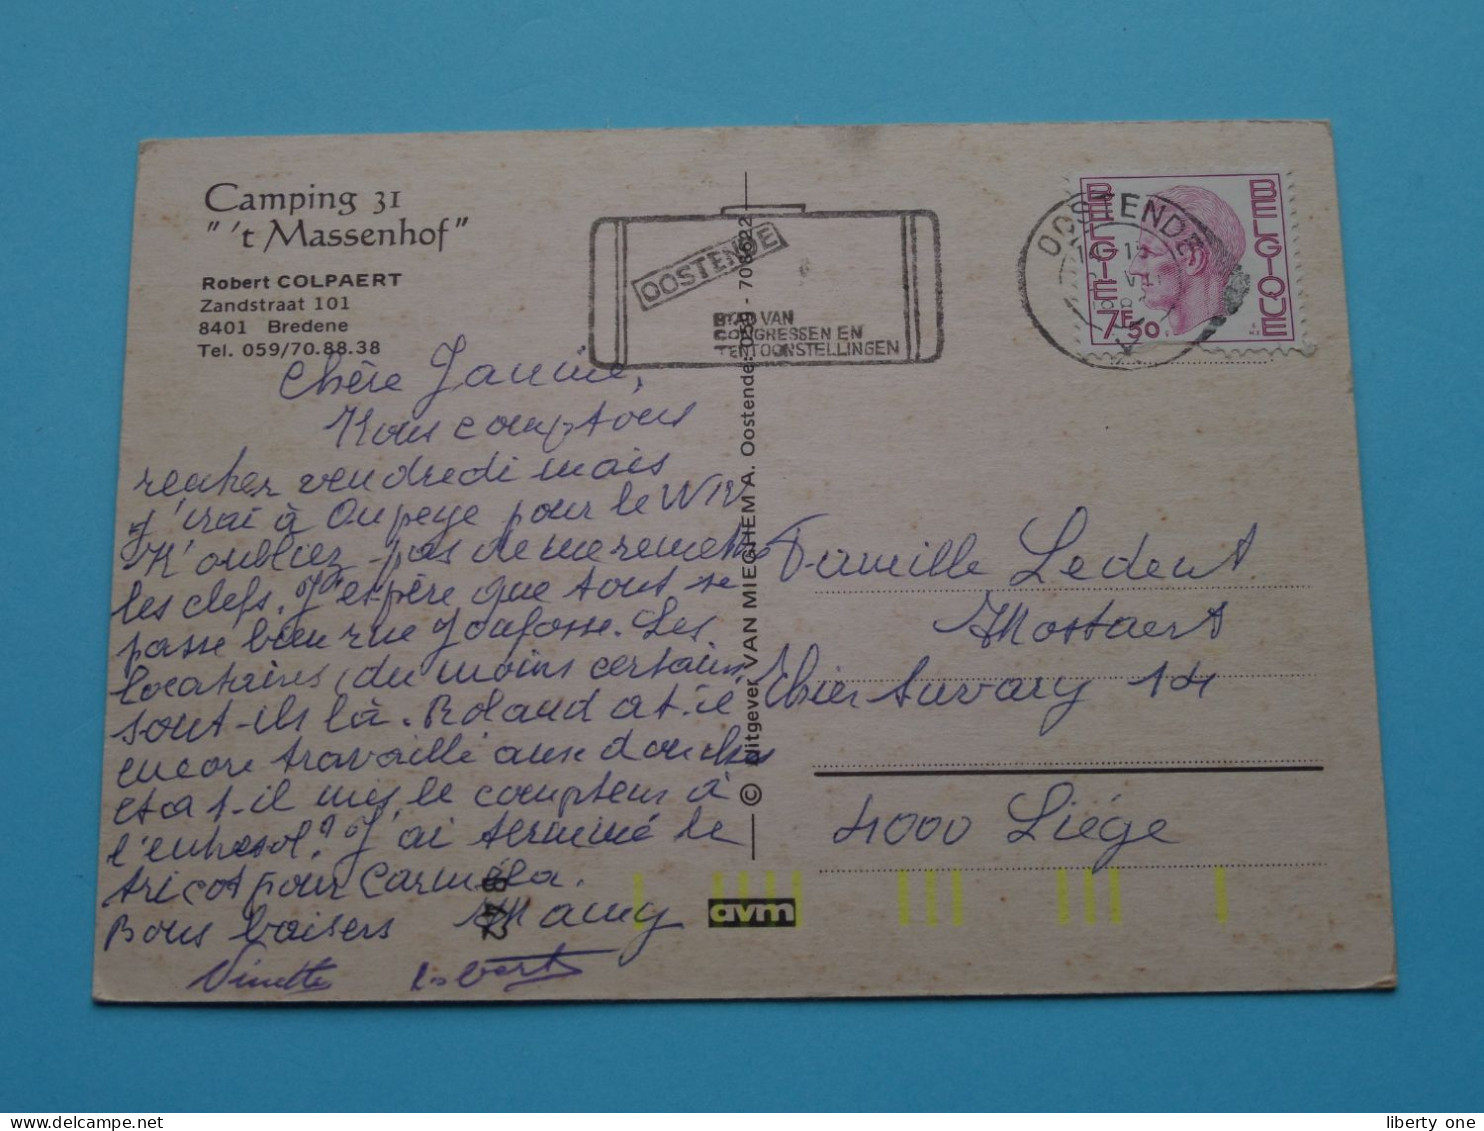 Camping 31
"'t Massenhof"
Robert COLPAERT
Zandstraat 101
8401 Bredene
Tel. 059/70.88.38
OOSTENDE
STAD VAN
CONGRESSEN EN
TENTOONSTELLINGEN
OOSTENDE
BELGIE
BELGIQUE
7F50
Chère Jannie,
Nous comptons
rentrer vendredi mais
j'irai à Oupeye pour le
N'oubliez pas de me remettre
les clefs. J'espère que tout se
passe bien rue Jonfosse. Les
locataires, du moins certains
sont-ils là. Roland a t-il
encore travaillé aux douches
et a t-il mis le compteur à
l'entresol? J'ai terminé le
tricot pour Carmela.
Bons baisers Mamy
Ninette
© Uitgever VAN MIEGHEM A. Oostende: 059 - 708622
avm
Famille Ledent
Mostaert
Thier Savary 14
4000 Liége